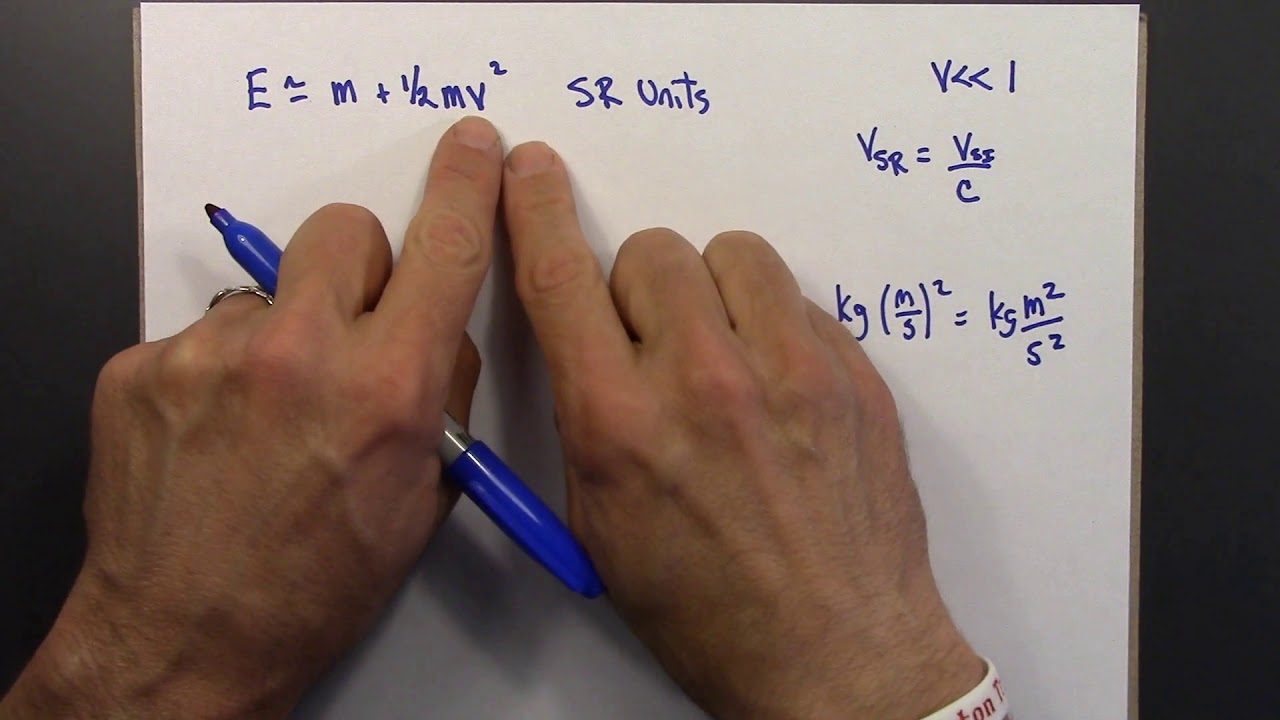 E ≃ m + 1/2 mv² SR units
v << 1
V_SR = V_SI / c
kg (m/s)² = kg m²/s²